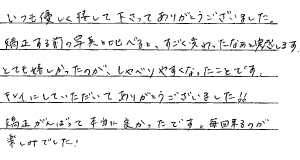 いつも優しく接して下さってありがとうございました。
矯正する前の写真と比べると、すごく変わったなぁと実感します。
とても嬉しかったのが、しゃべりやすくなったことです。
キレイにしていただいてありがとうございました!!
矯正がんばって本当に良かったです。毎回来るのが
楽しみでした!